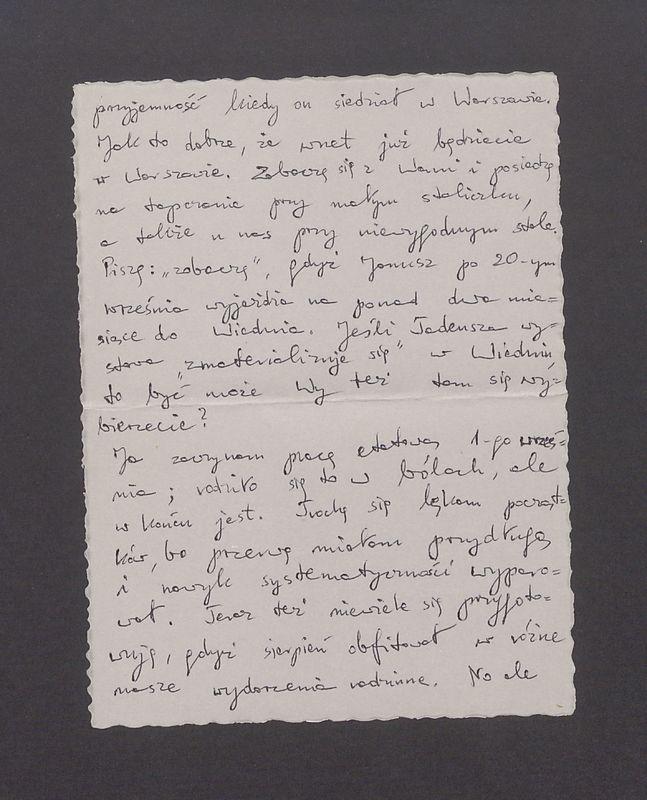 przyjemność kiedy on siedział w Warszawie.
Jak to dobrze, że wnet już będziecie
w Warszawie. Zobaczę się z Wami i posiedzę
na tapczanie przy małym stoliczku,
a także u nas przy niewygodnym stole.
Piszę: „zobaczę", gdyż Janusz po 20-ym
września wyjeżdża na ponad dwa mie=
siące do Wiednia. Jeśli Tadeusza wy=
stawa „zmaterializuje się" w Wiedniu
to być może Wy też tam się wy=
bierzecie?
Ja zaczynam pracę etatową 1-go wrześ=
nia; rodziło się to w bólach, ale
w końcu jest. Trochę się lękam począt=
ków, bo przerwę miałam przydługą
i nawyk systematyczności wyparo=
wał. Teraz też niewiele się przygoto=
wuję, gdyż sierpień obfitował w różne
nasze wydarzenia rodzinne. No ale